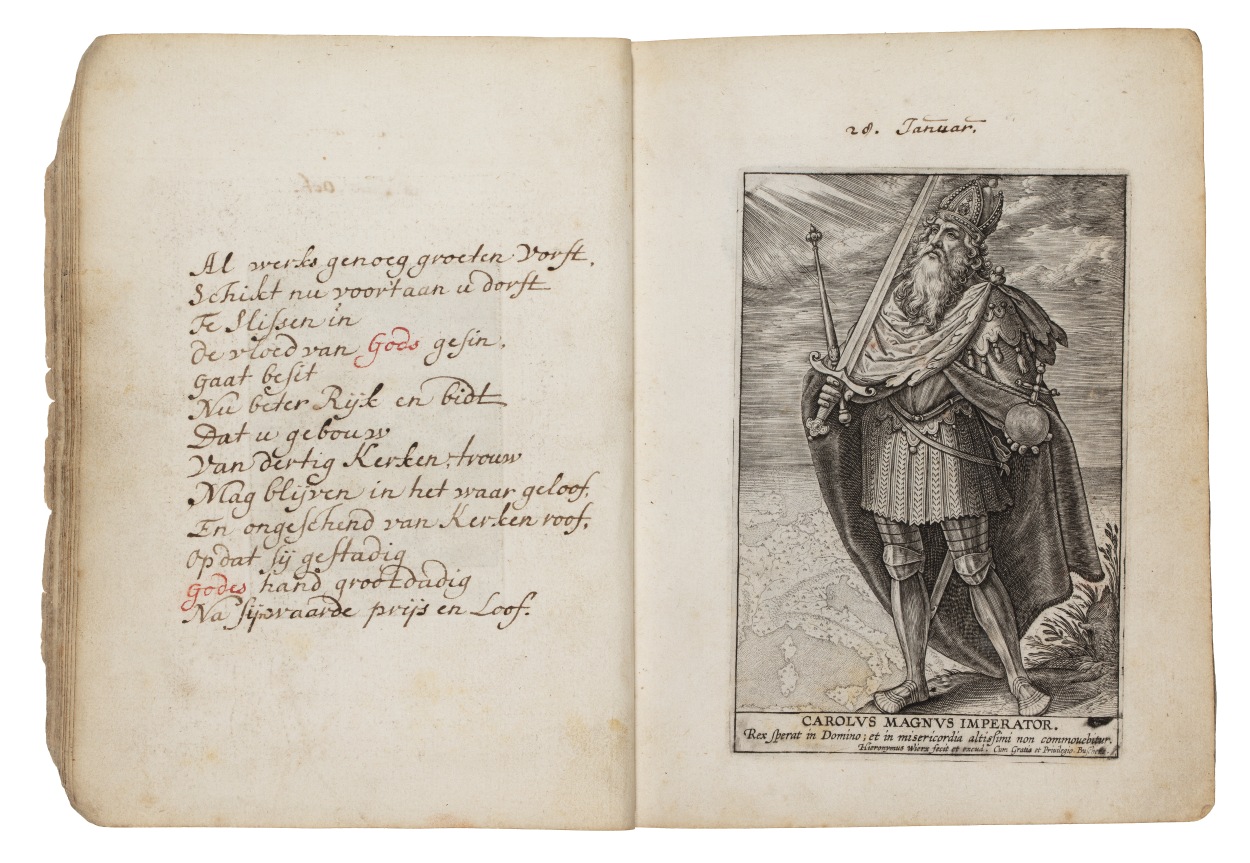 Al werks genoeg groeten Vorst,
Schikt nu voortaan u dorst
Te Slissen in
de vloed van Gods gesin.
gaat besit
Nu beter Rijk en bidt
Dat u gebouw
Van dertig Kerken, trouw
Mag blijven in het waar geloof,
En ongeschend van Kerken roof,
Opdat sij gestadig
Godes hand grootdadig
Na sijn waarde prijs en Loof.
28. Januar.
CAROLVS MAGNVS IMPERATOR.
Rex sperat in Domino; et in misericordia altissimi non commovebitur.
Hieronymus Wierx fecit et excud. Cum Gratia et Privilegio.